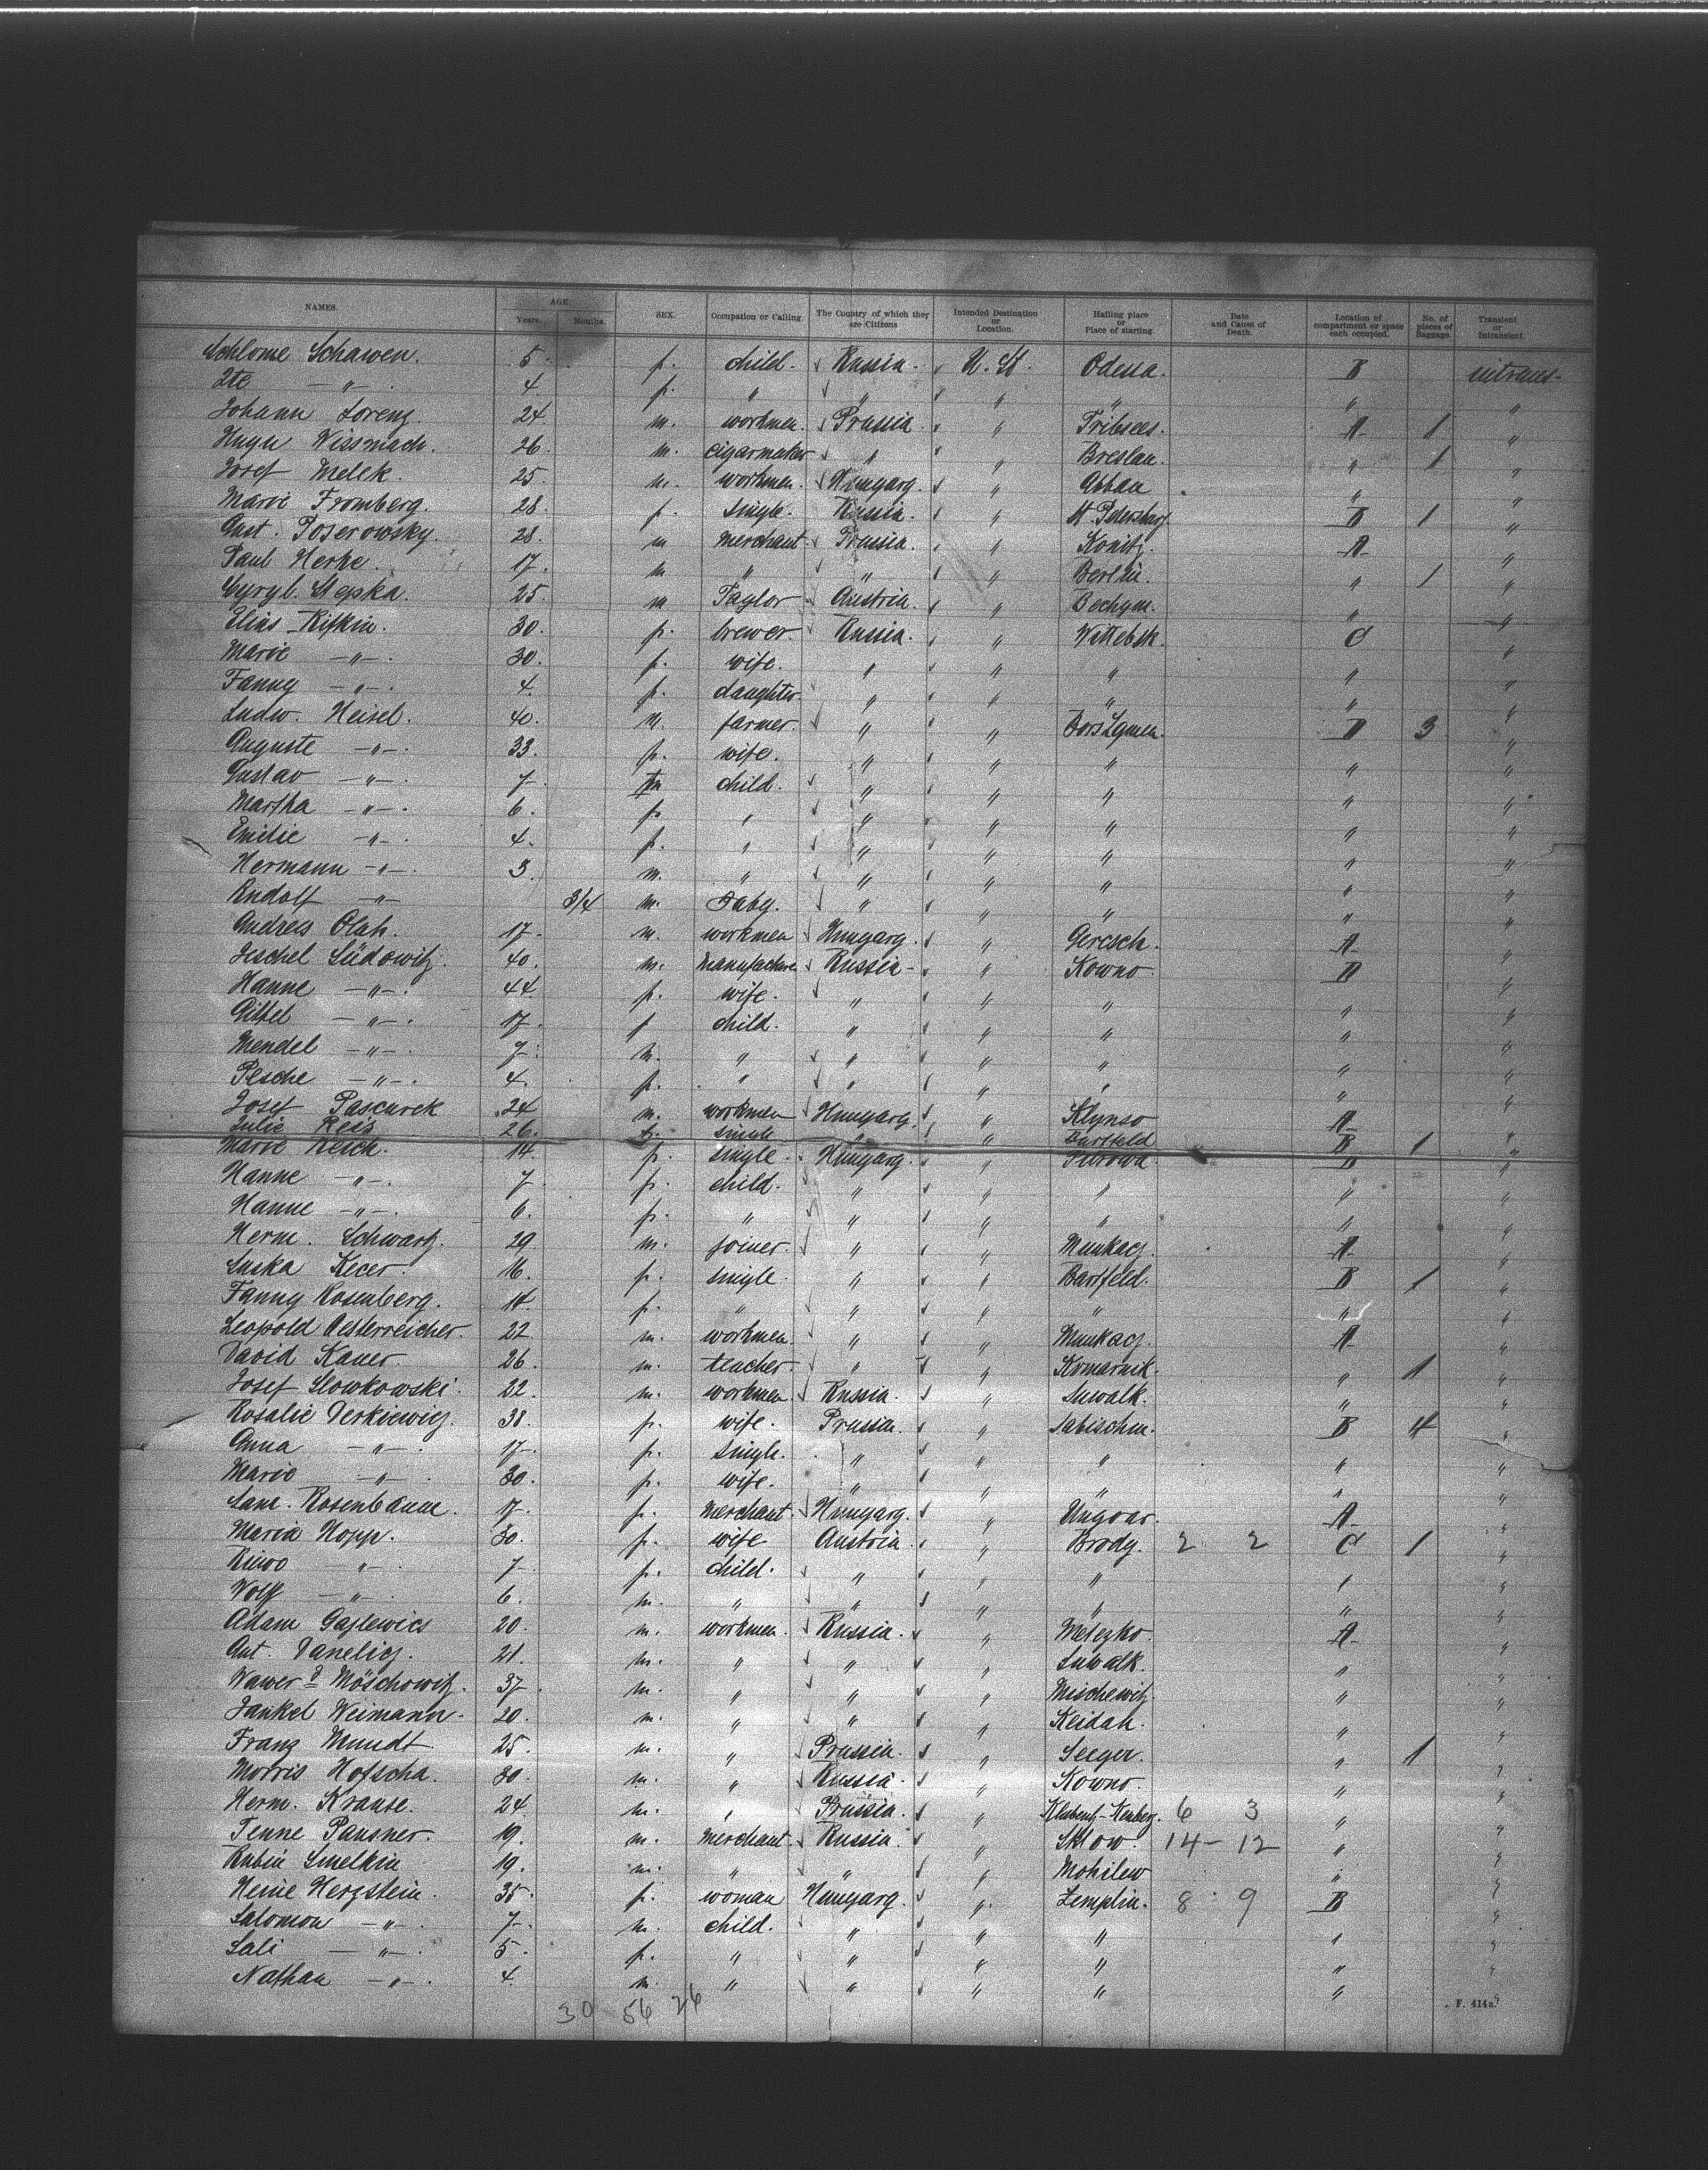 NAMES. AGE. Years. Months. SEX. Occupation or Calling. The Country of which they are Citizens Intended Destination or Location. Hailing place or Place of starting. Date and Cause of Death. Location of compartment or space each occupied. No. of pieces of Baggage. Transient or Intransient.
Schlome Schawen. 5. f. child. Russia. U. St. Odessa. B intrans-
Ite —"— . 4. f. " " " " " "
Johann Lorenz. 24. m. workmen. Prussia. " Tribsees. A 1 "
Hugo Wissmach. 26. m. cigarmaker " " Breslau. " 1 "
Josef Melek. 25. m. workmen. Hungary. " Abbau " "
Marie Fromberg. 28. f. single. Russia. " St. Petersburg. B 1 "
Gust. Poserowsky. 28. m merchant. Prussia. " Konitz. A "
Paul Herke. 17. m " " " Berlin. " 1 "
Cyryl. Stepka. 25. m Taylor Austria. " Bechyn. " "
Elias Rifkin. 30. f. brewer Russia. " Wittebsk. C "
Marie —"—. 30. f. wife. " " " " "
Fanny —"—. 4. f. daughter. " " " " "
Ludw. Heisel. 40. m. farmer. " " B 3 "
Auguste —"—. 33. f. wife. " " " " "
Gustav —"—. 7. m child. " " " " "
Martha —"—. 6. f. " " " " " "
Emilie —"—. 4. f. " " " " " "
Hermann —"—. 3. m. " " " " " "
Rudolf —"— 3/4 m. Baby. " " " " "
Andreas Olah. 17. m. workmen Hungary. " Geresch. A "
Jeschel Südowitz. 40. m. manufacture Russia- " Kowno B "
Hanne —"—. 44. f. wife. " " " " "
Gittel —"—. 17. f child. " " " " "
Mendel —"—. 7. m. " " " " " "
Pesche —"—. 4. f. " " " " " "
Josef Pascurek 24 m. workmen Hungary. " Klynso A "
Julie Reis 26. f. single " " Bartfeld B 1 "
Marie Reich. 14. f. single. Hungary. " B "
Hanne —"—. 7. f. child. " " " " "
Hanne —"—. 6. f. " " " " " "
Herm. Schwarz. 29. m. joiner. " " Munkacz. A "
Suska Kecer. 16. f. single. " " Bartfeld. B 1 "
Fanny Rosenberg. 14. f. " " " " " "
Leopold Oesterreicher. 22. m. workmen. " " Munkacz. A "
David Kauer. 26. m. teacher. " " Komarnik. " 1 "
Josef Slowkowski. 22. m. workmen. Russia. " Suwalk. " "
Rosalie Derkiewicz. 38. f. wife. Prussia. " Sabischin. B 4 "
Anna —"— . 17. f. single. " " " " "
Marie —"— . 30. f. wife. " " " " "
Sam. Rosenbaum. 17. f. merchant. Hungary. " Ungvar. A "
Maria Hopp. 30. f. wife Austria. " Brody. 2 2 C 1 "
Riwo —"—. 7. f. child. " " " " "
Wolf —"—. 6. m. " " " " " "
Adam Gajlewics 20. m. workmen. Russia. " Metezko. A "
Ant. Danelicz. 21. m. " " " Suwalk. " "
Wawer Möschowitz. 37. m. " " " Mischewitz. " "
Jankel Weimann. 20. m. " " " Keidah. " "
Franz Mundt. 25. m. " Prussia. " Seeger. " 1 "
Morris Hofscha. 30. m. " Russia. " Kowno. " "
Herm. Krause. 24. m. " Prussia. " 6 3 " "
Tenne Pausner. 19. m. merchant. Russia. " Sklow. 14 - 12 " "
Rubin Smelkin 19. m. " " " Mohilew " "
Heine Herzstein. 35. f. woman Hungary. " Zemplin. 8 9 B "
Salomon —"—. 7. m. child. " " " " "
Sali —"—. 5. f. " " " " " "
Nathan —"—. 4. m. " " " " " "
30 56 26
F. 414a.